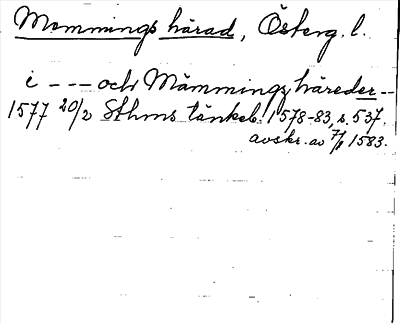 Memmings härad, Österg. l.
i - - - och Mämmings häreder - -
1577 20/2 Sthms tänkeb. 1578-83, s. 537.
avskr. av 7/1 1583.